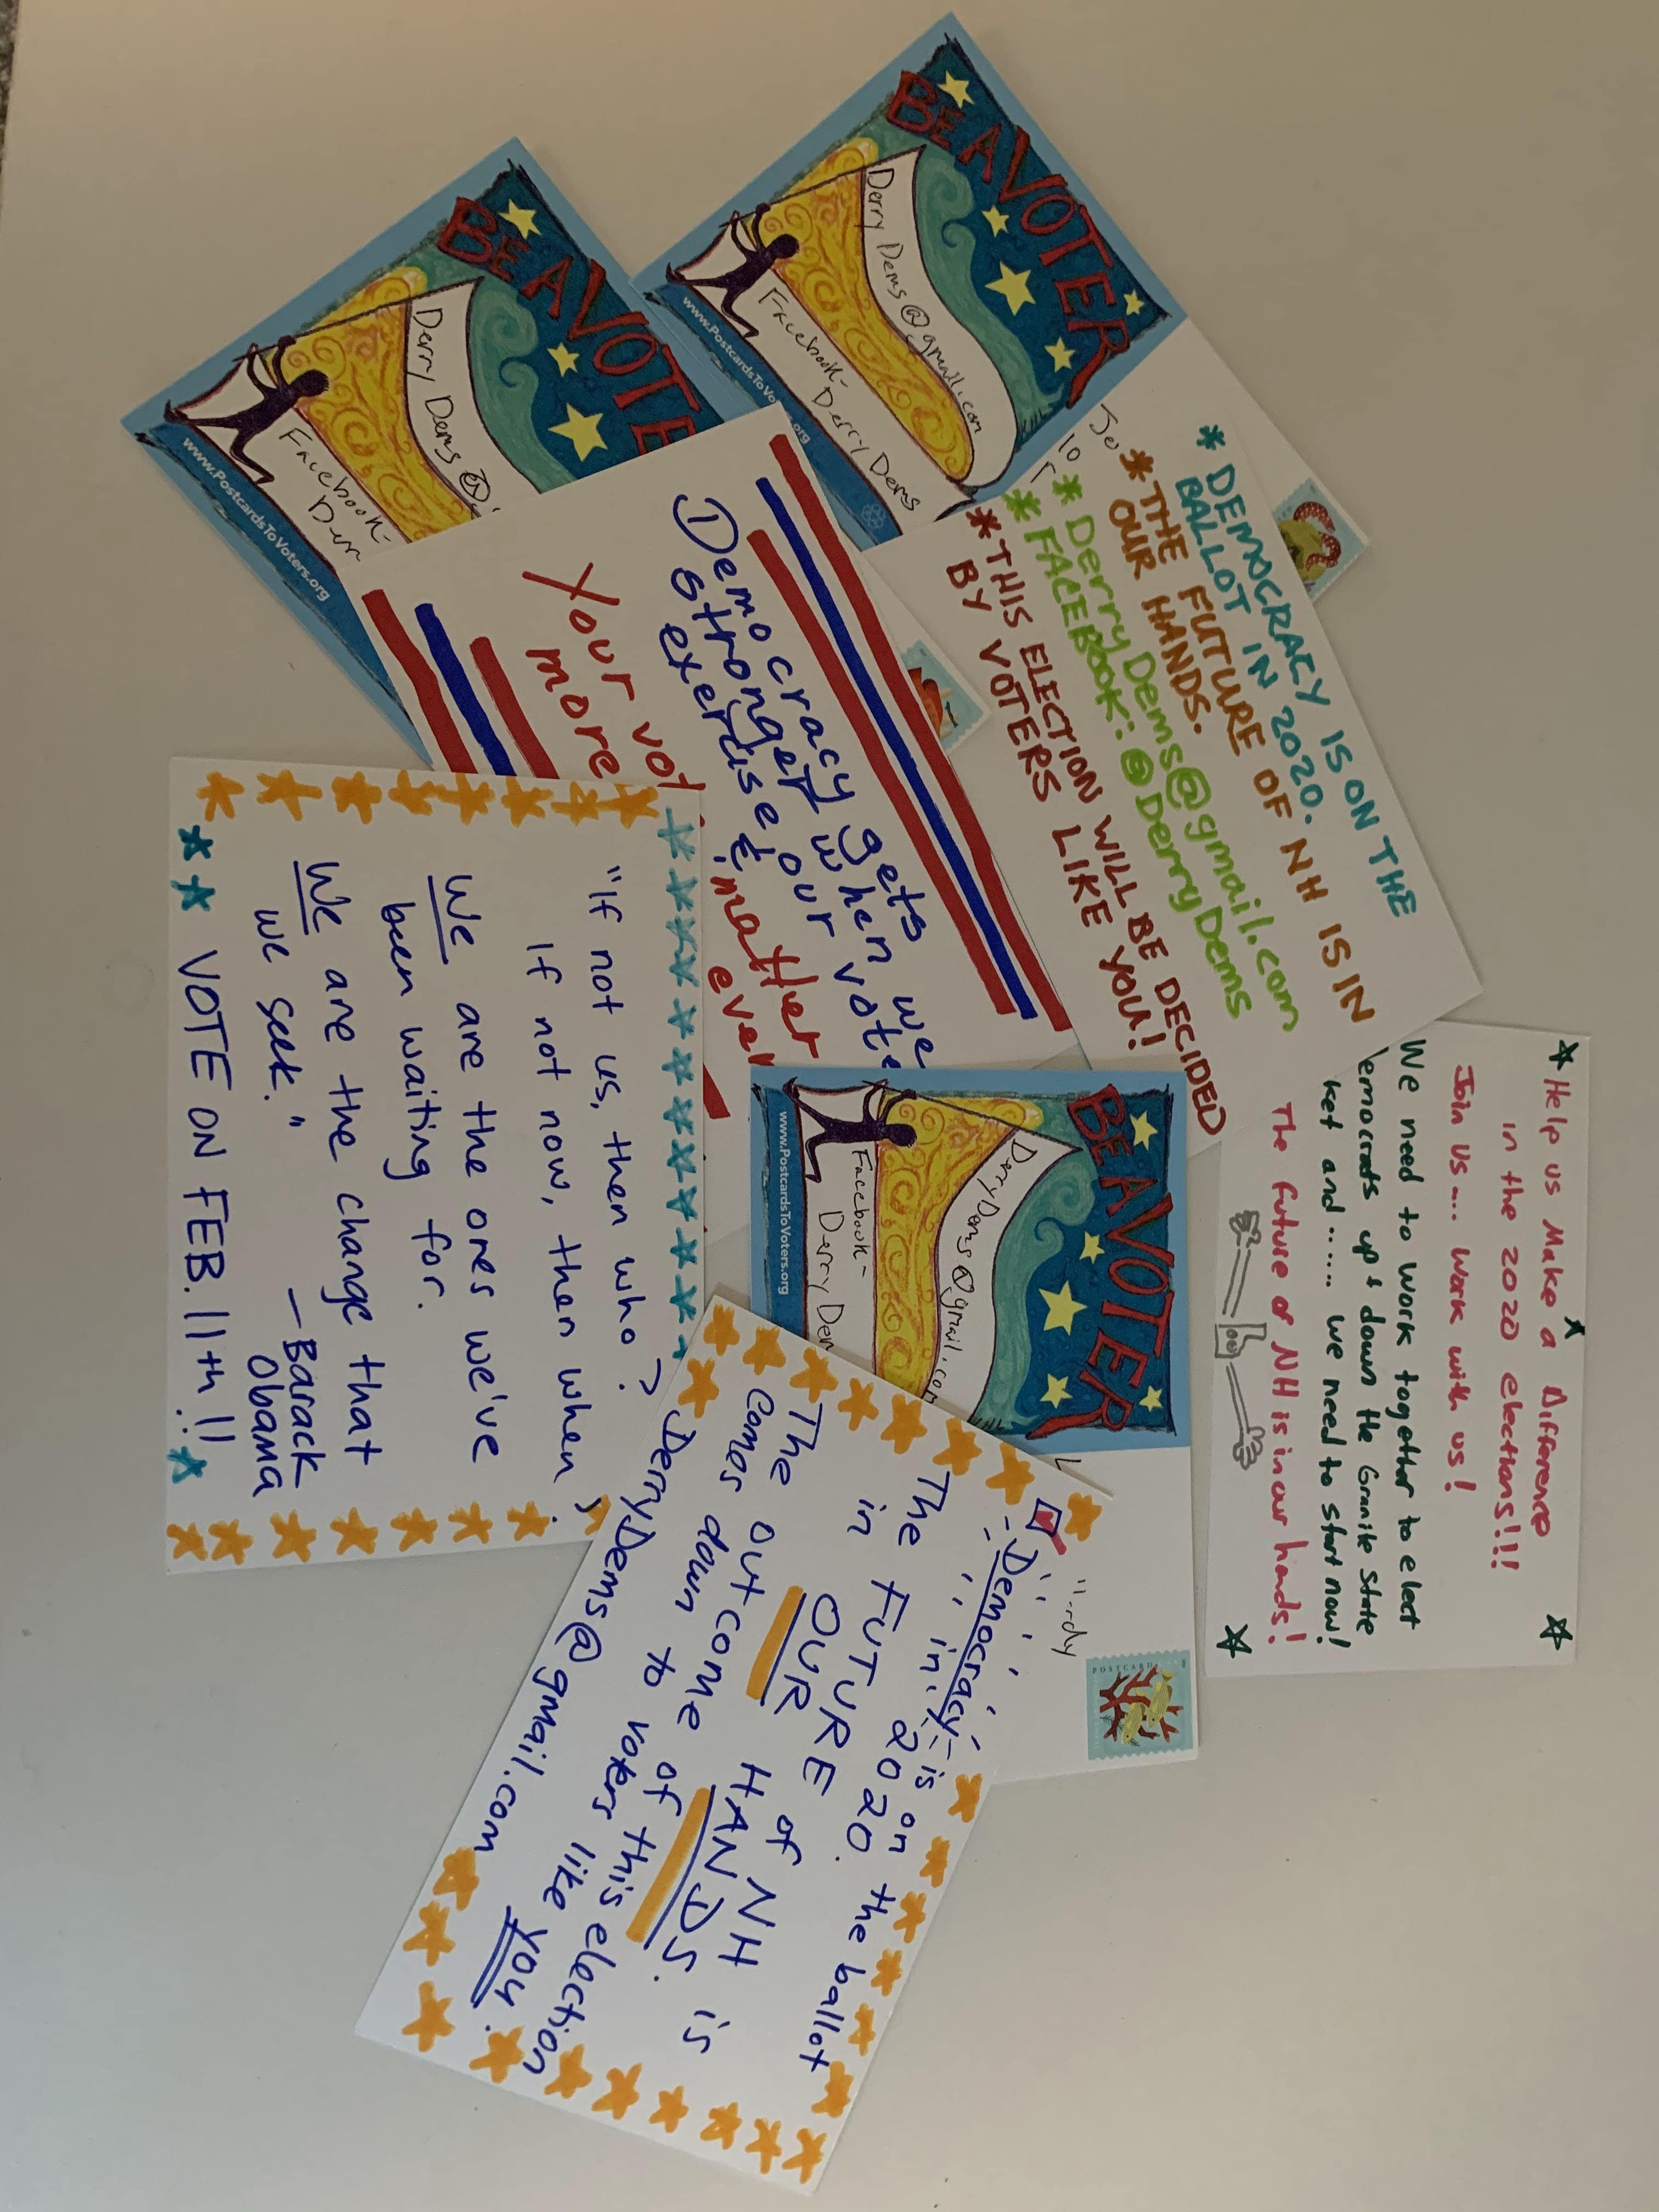 BE A VOTER
Derry Dems@gmail.com
Facebook-
Derry Dems
www.PostcardsToVoters.org
BE A VOTE
Derry Dems @
Facebook-
www.PostcardsToVoters.org
* DEMOCRACY IS ON THE
BALLOT IN 2020.
* THE FUTURE OF NH IS IN
OUR HANDS.
* Derry Dems@gmail.com
* FACEBOOK: @Derry Dems
* THIS ELECTION WILL BE DECIDED
BY VOTERS LIKE YOU!
① Democracy gets
stronger when we
exercise our vote
Your vot
more
& matter
ever
Help us Make a Difference
in the 2020 elections!!!
Join us... work with us!
We need to work together to elect
emocrats up & down the Granite State
ket and...... we need to start now!
The future of NH is in our hands!
BE A VOTER
DerryDems@gmail.com
Facebook-
Derry Dem
www.PostcardsToVoters.org
POSTCARD
"If not us, then who?
If not now, then when?
We are the ones we've
been waiting for.
We are the change that
we seek."
—Barack
Obama
VOTE ON FEB. 11th!!
Democracy is on the ballot
in 2020.
The FUTURE of NH is
in OUR HANDS.
The outcome of this election
comes down to voters like you.
DerryDems@gmail.com